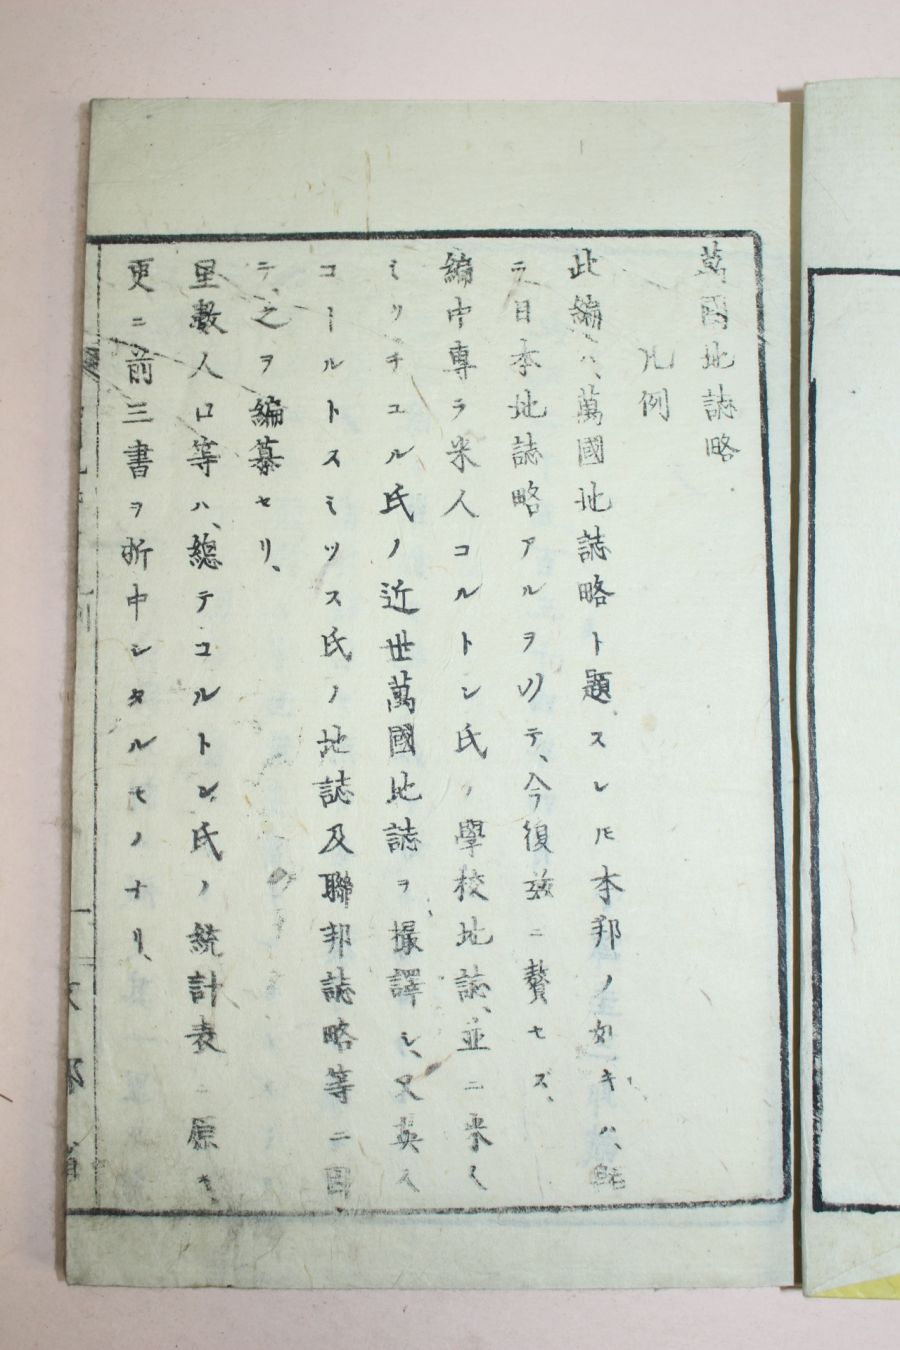 萬國地誌略
凡例
此編ハ、萬國地誌略ト題スレ𪜈本邦ノ如キハ、既
ニ日本地誌略アルヲ以テ、今復茲ニ贅セズ、
編中專ラ米人コルトン氏ノ學校地誌、並ニ米人
ミッチユル氏ノ近世萬國地誌ヲ撮譯シ、又英人
コールトスミツス氏ノ地誌及聯邦誌略等ニ因
テ、之ヲ編纂セリ、
里數人口等ハ、總テコルトン氏ノ統計表ニ原キ、
更ニ前三書ヲ折中シタルモノナリ、
文部省